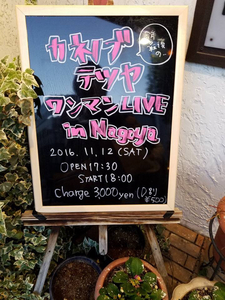 カネノブ
テツヤ
ワンマンLIVE
in Nagoya
2016.11.12 (SAT)
OPEN 17:30
START 18:00
Charge 3000yen (D別
¥500)